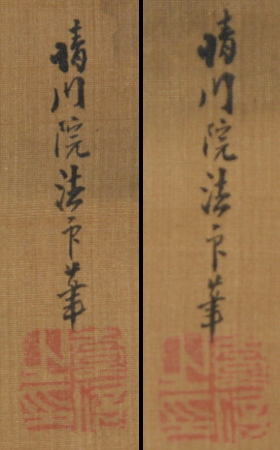 晴川院法印筆
晴川院法印筆